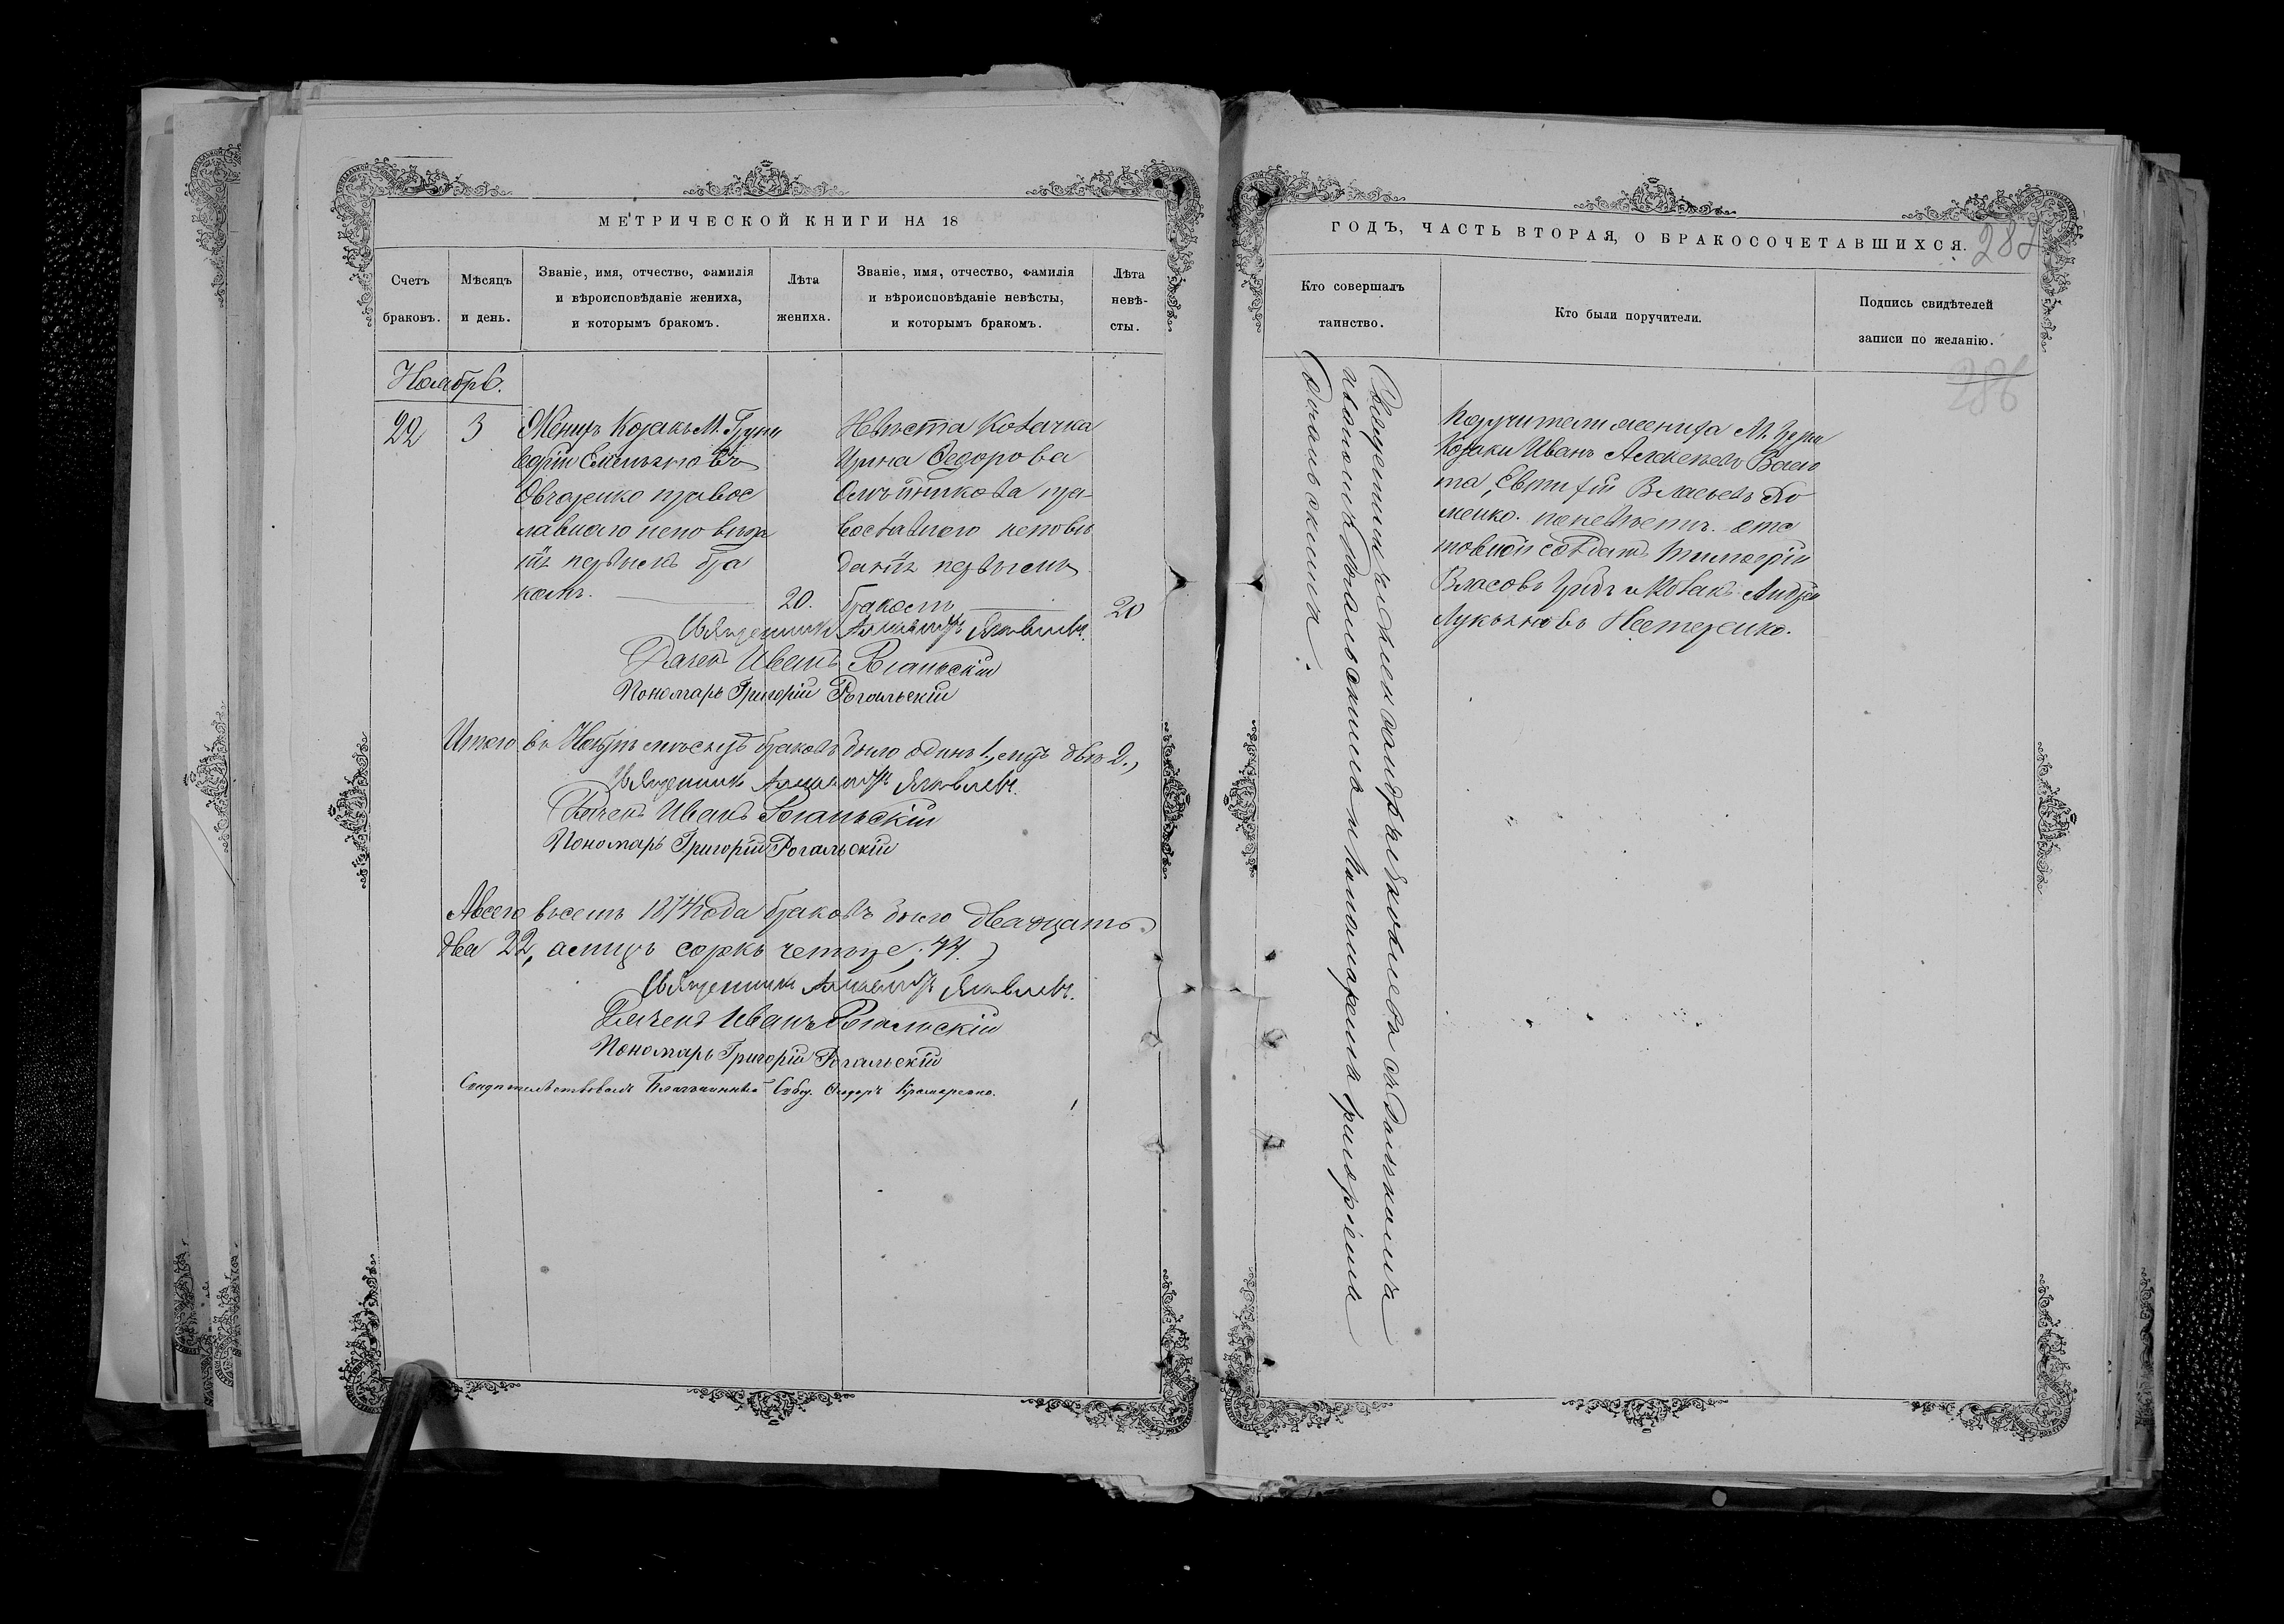 МЕТРИЧЕСКОЙ КНИГИ НА 18
Счетъ браковъ.
Мѣсяцъ и день.
Званіе, имя, отчество, фамилія
и вѣроисповѣданіе жениха,
и которымъ бракомъ.
Лѣта жениха.
Званіе, имя, отчество, фамилія
и вѣроисповѣданіе невѣсты,
и которымъ бракомъ.
Лѣта невѣ-сты.
Ноябрь.
22
3
Женихъ Козакъ М. Груни
Емельяновъ
Овчаренко правос
лавнаго исповѣда
нія первымъ бра
комъ.
20.
Невѣста Козачка
Ирина Федорова
Олѣйникова пра-
вославного исповѣ
данія первымъ
бракомъ
20
Священникъ Александръ Яковлевъ.
Дячекъ Иванъ Рогальскій
Пономарь Григорій Рогальскій
Итого въ Ноябрѣ мѣсяцѣ браковъ было одинъ 1, лицъ двѣ 2.,
Священникъ Александръ Яковлевъ.
Дячекъ Иванъ Рогальскій
Пономарь Григорій Рогальскій
Авсего всемъ 1874 года браковъ было двадцать
два 22, алицъ соркъ четыре, 44.
Священникъ Александръ Яковлевъ.
Дячекъ Иванъ Рогальскій
Пономарь Григорій Рогальскій
Свидетельствовалъ Благочинный Ѳедоръ Крамаренко.
ГОДЪ, ЧАСТЬ ВТОРАЯ, О БРАКОСОЧЕТАВШИХСЯ.
Кто совершалъ таинство.
Кто были поручители.
Подпись свидѣтелей
записи по желанію.
286
Священникъ Александръ Яковлевъ съ Дячкомъ
Иваномъ Рогальскимъ и Паномаремъ Григоріемъ
Рогальскимъ.
Поручители жениха М. Груни
Козаки Иванъ Алексѣевъ
Евтифій Власьевъ Хо
менко. по невѣсти. отс
тавной солдатъ Тимофій
Власовъ и Козакъ Андрей
Лукьяновъ Нестеренко.